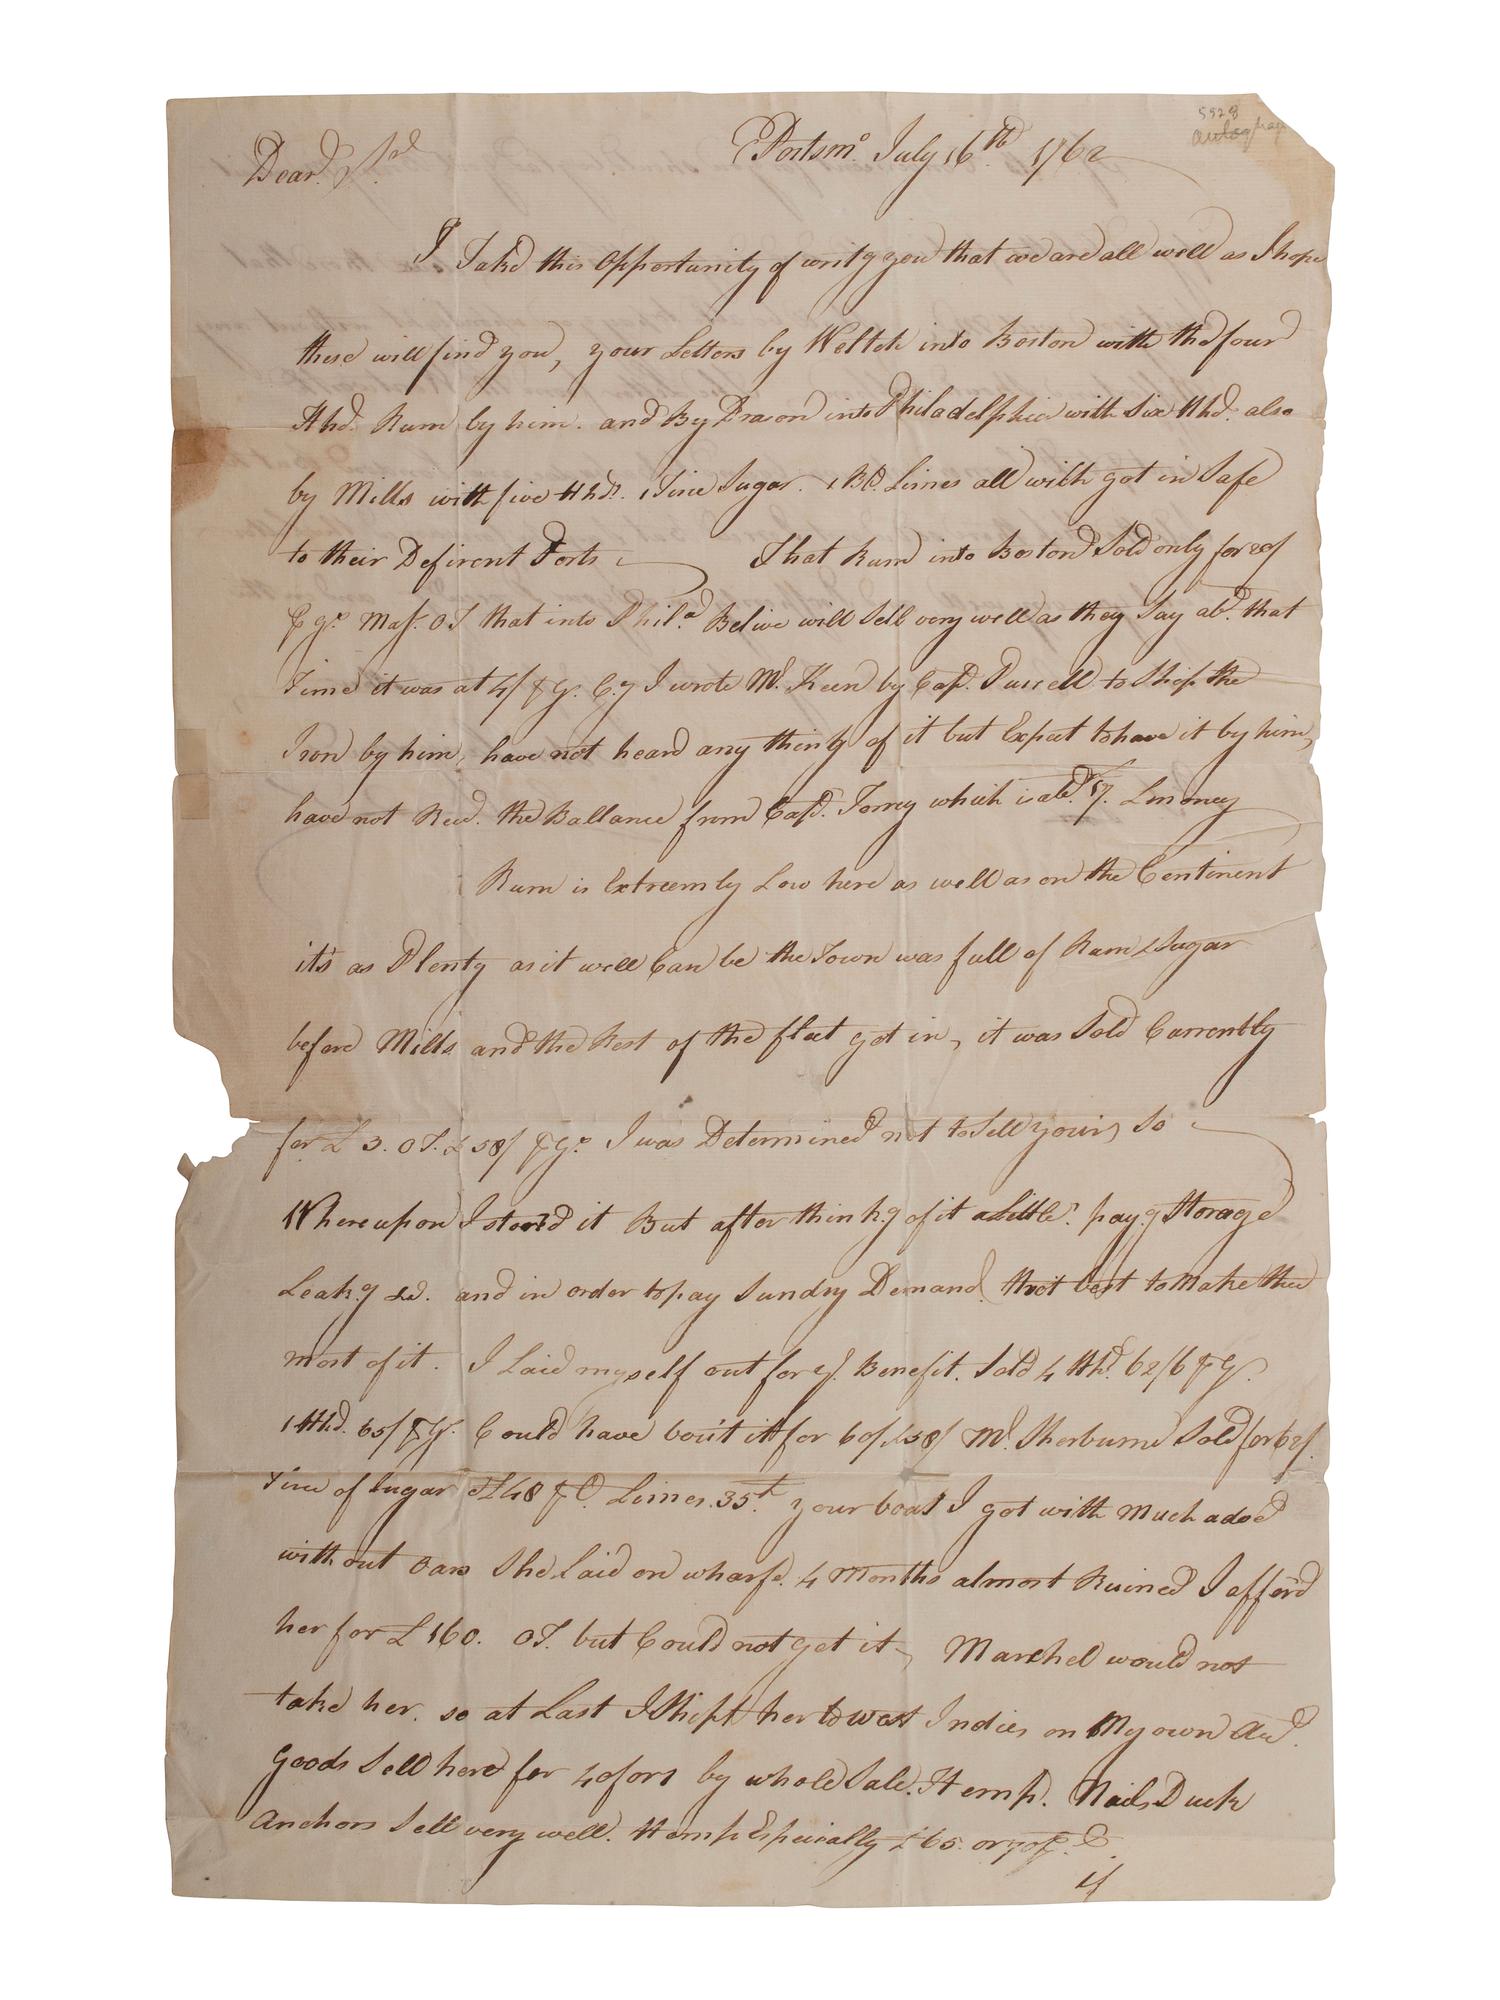 5528
autog
Portsmo. July 16th. 1762
Dear. Sr.
I Take this Opportunity of writg you that we are all well as I hope
these will find you, your Letters by Weltch into Boston with the four
Hhd. Rum by him. and By Drason into Philadelphia with Six Hhd. also
by Mills with five Hhds. 1 Tirce Sugar. 1 Bb. Limes all wich got in Safe
to their Defirent Ports That Rum into Boston Sold only for
Gn. Mas. OT that into Phila. Belive will Sell very well as they Say abt. that
Time it was at 4/ ₱ G. Cy I wrote Mr. Keen by Capt. Purcell to Ship the
Iron by him, have not heard any thing of it but Expect to have it by him,
have not Recd. the Ballance from Capt. Torrey which is abt. 17. Lmoney
Rum is Extreemly Low here as well as on the Continent
it's as Plenty as it well Can be the Town was full of Rum & Sugar
before Mills and the Rest of the fleet got in, it was Sold Currently
for £ 3. OT. & 58/ ₱ Gn. I was Determined not to Sell yours So
Whereupon I stor'd it But after thinkg of it a Little. payg Storage
Leakg &c. and in order to pay Sundry Demand. thot best to Make the
most of it. I Laid myself out for yr. Benefit. Sold 4 Hhd. 62/6 ₱ G.
1 Hhd. 65/ ₱ G. Could have bou't it for 60/ & 58/ Mr. Sherburne Sold for 62/.
Tirce of Sugar £48 ₱ C. Limes. 35. your boat I got with Much adoe
with out Oars She Laid on wharfe. 4 Months almost Ruined I afferd
her for £ 160. OT. but Could not get it, Marshel would not
take her. so at Last I Shipt her to West Indies on My own Acct.
Goods Sell here for 40 for 1 by whole Sale. Hemp. Nails Duck
Anchors Sell very well. Hemp Espicially £ 65. or 70 ₱. C.